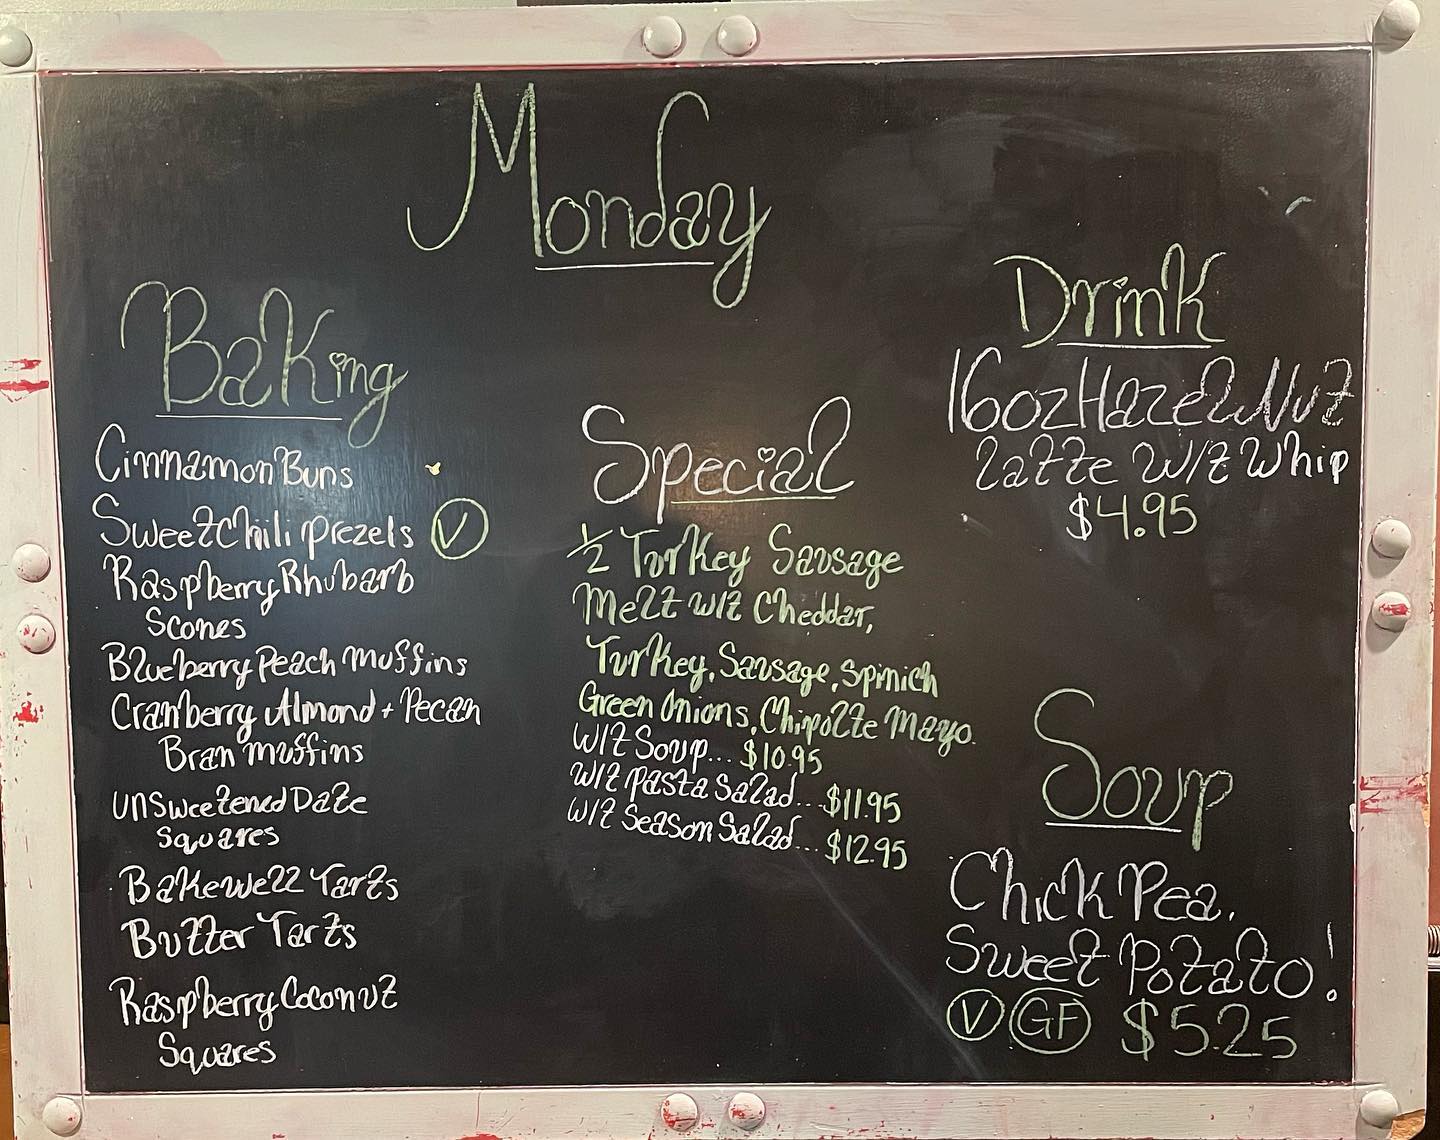 Monday
Baking
Cinnamon Buns
Sweet Chili Prezels V
Raspberry Rhubarb
Scones
Blueberry Peach Muffins
Cranberry Almond + Pecan
Bran Muffins
Unsweetened Date
Squares
Bakewell Tarts
Butter Tarts
Raspberry Coconut
Squares
Special
1/2 Turkey Sausage
Melt w/t Cheddar,
Turkey, Sausage, Spinich
Green Onions, Chipolte Mayo.
w/t Soup... $10.95
w/t Pasta Salad... $11.95
w/t Season Salad... $12.95
Drink
16oz Hazelnut
Latte w/t Whip
$4.95
Soup
Chick Pea,
Sweet Potato!
V GF $5.25